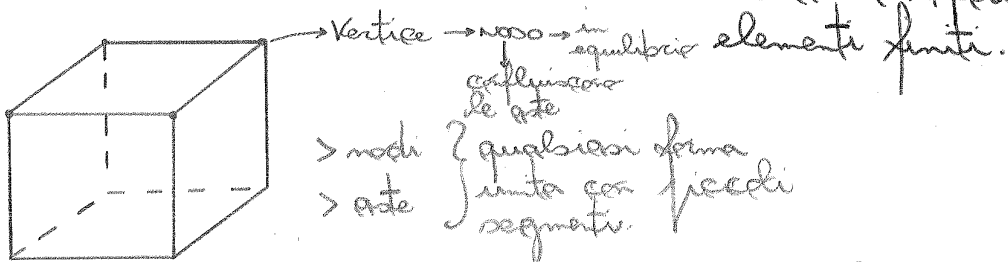 → Vertice → NODO → in equilibrio elementi finiti.
↓
confluiscono
le aste
> nodi } qualsiasi forma
> aste } unita con piccoli
segmenti.